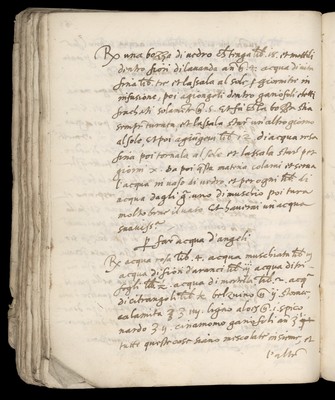 Rx una bozza di vedro ch tenga lib. 15. et mettili
dentro fiori di lavanda an lib acqua di rosa
fina lib. tre et lassala al sole giorni tre in
infusione, poi agiongeli dentro garofoli rotti
solamente et fa che la bozza sia
sempre turata, et lassala star un'altro giorno
al sole, et poi agiogegli lib di acqua rosa
fina poi tornala al sole, et lassala star per
giorni x. da poi questa materia colarai et serva
l'acqua in vaso di vedro, et per ogni lib. di
acqua dagli uno di muschio poi tura
molto bene il vaso Et haverai un'acqua
suavissa
Per far acqua d'angeli
Rx acqua rosa lib. 4. acqua muschiata lib.
acqua di fiori d'aranci lib. iij acqua di tri
fogli lib. acqua di mortella lib. acq
di citrangoli lib. belzuino ij. storace
calamita iiij. ligno aloes i. spico
nardo ij. cinamomo garofoli an
tutte queste cose siano mescolate insieme, et
l'altro